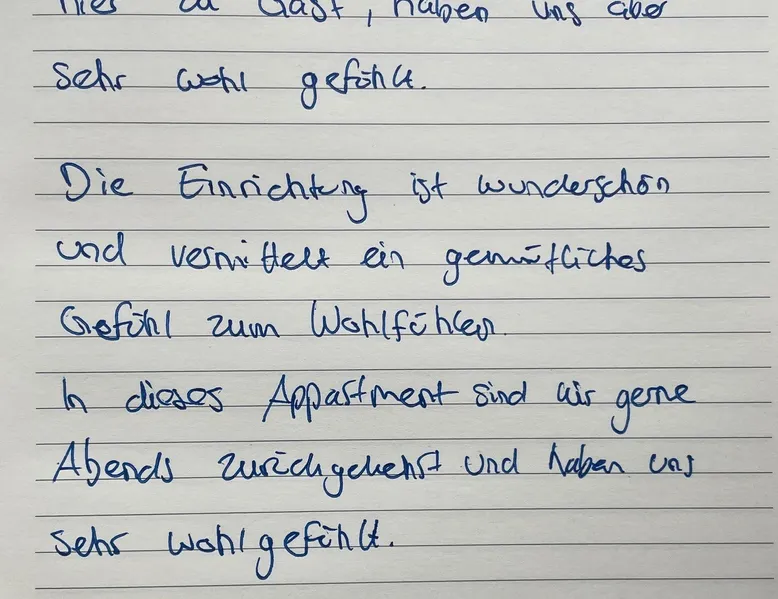 hier zu Gast, haben uns aber
sehr wohl gefühlt.
Die Einrichtung ist wunderschön
und vermittelt ein gemütliches
Gefühl zum Wohlfühlen.
In dieses Appartment sind wir gerne
Abends zurückgekehrt und haben uns
sehr wohl gefühlt.